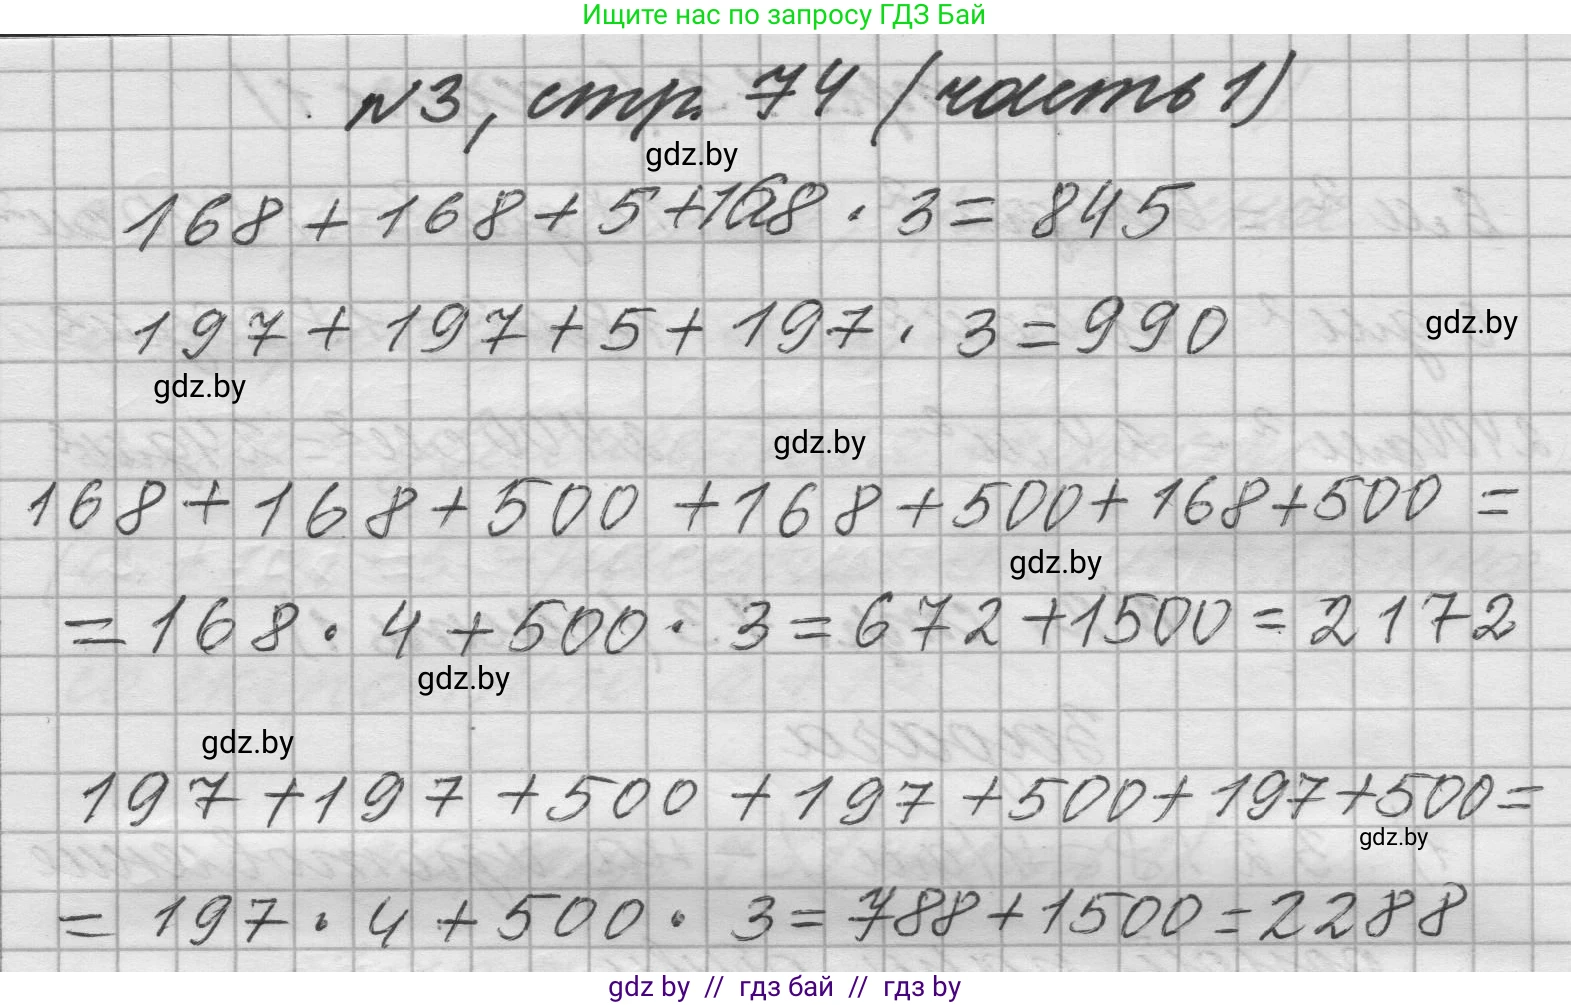 Ищите нас по запросу ГДЗ Бай
№3, стр. 74 (часть 1)
gdz.by
168 + 168 + 5 + 168 · 3 = 845
197 + 197 + 5 + 197 · 3 = 990
gdz.by
gdz.by
gdz.by
168 + 168 + 500 + 168 + 500 + 168 + 500 =
gdz.by
= 168 · 4 + 500 · 3 = 672 + 1500 = 2172
gdz.by
gdz.by
197 + 197 + 500 + 197 + 500 + 197 + 500 =
gdz.by
= 197 · 4 + 500 · 3 = 788 + 1500 = 2288
gdz by // гдз бай // гдз by